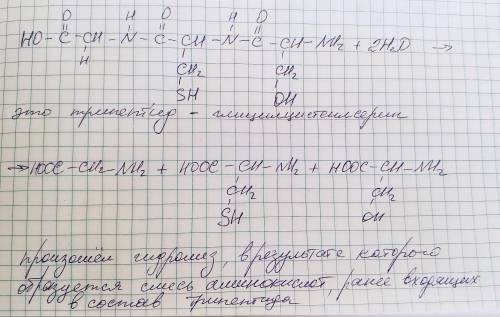 O H O H O
HO-C-CH-N-C-CH-N-C-CH-NH₂ + 2H₂O →
H CH₂ CH₂
SH OH
это трипептид - глицилцистеилсерин
→ HOOC-CH₂-NH₂ + HOOC-CH-NH₂ + HOOC-CH-NH₂
CH₂ CH₂
SH OH
произошёл гидролиз, в результате которого
образуется смесь аминокислот, ранее входящих
в состав трипептида